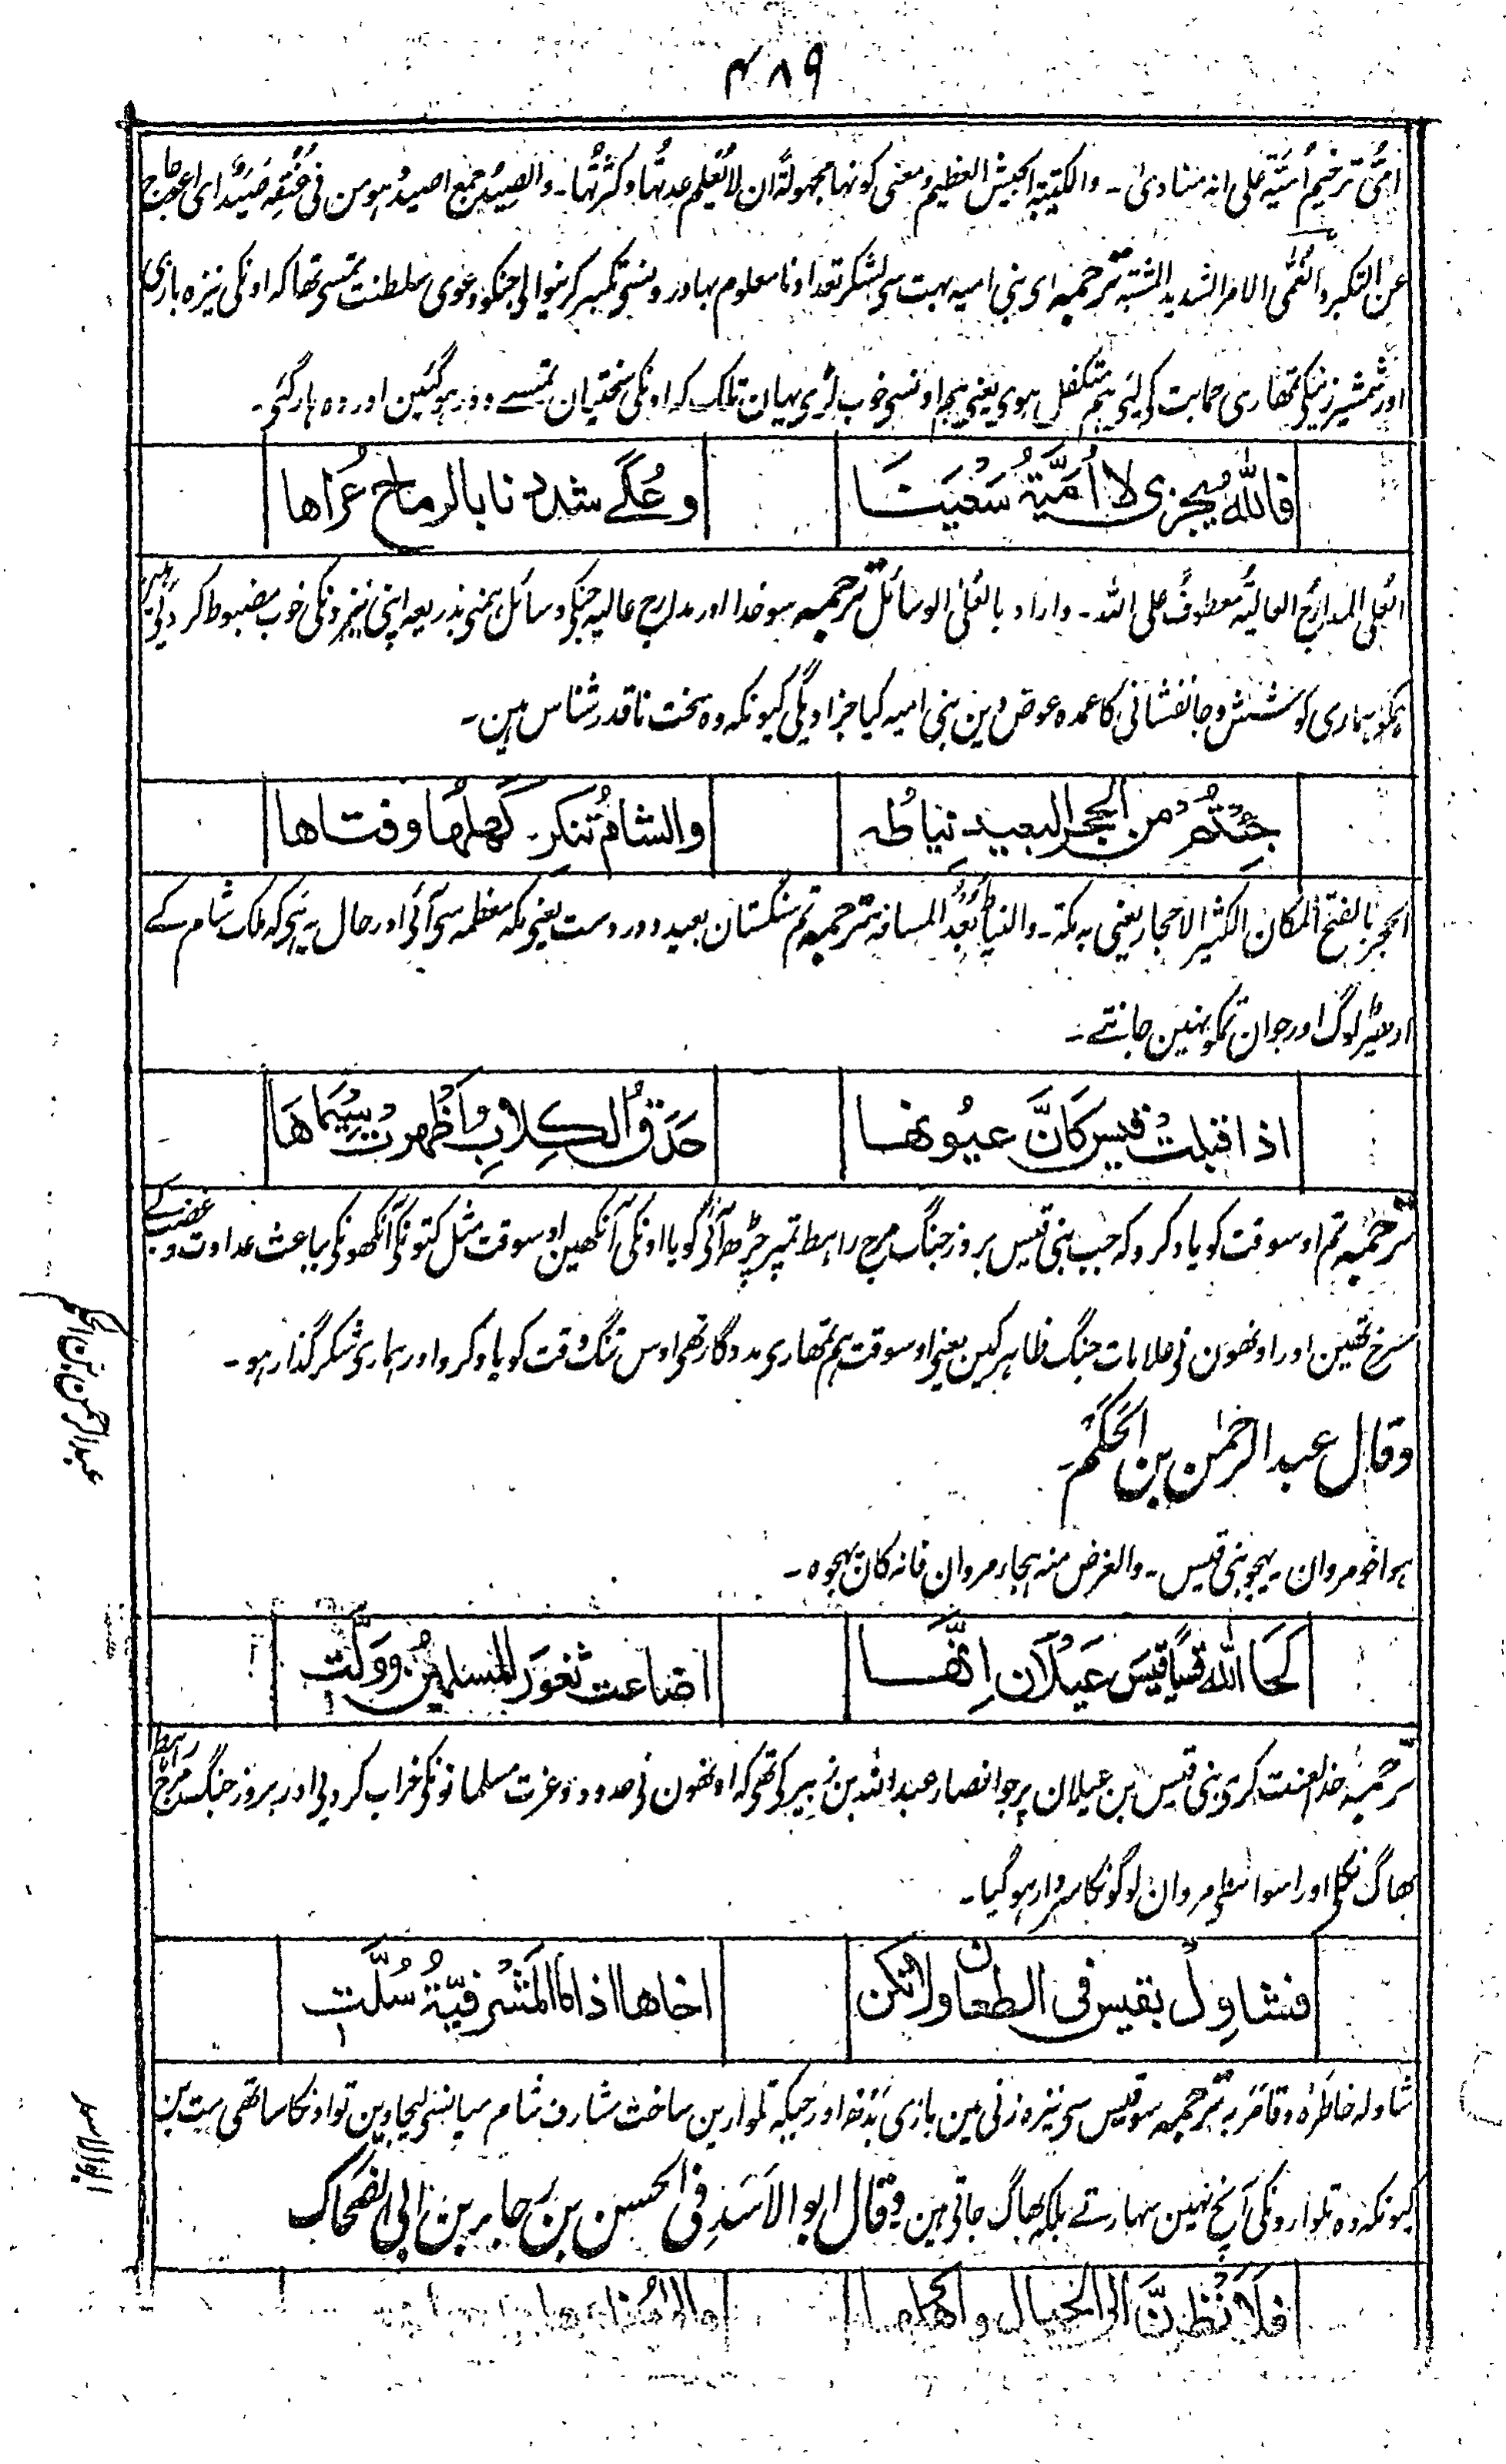 ۴۸۹
امیّ ترخیم اُمیّۃ علی انہ منادیٰ۔ والکتیبۃ الجیش العظیم ومعنی کونہا مجہولۃً ان لا تُعلم عدتہا وکثرتُہا۔ والصِیدُ جمع اصید وہو من فی عُنُقِہٖ صَیَدٌ ای اعوجاج
عن التکبر والغُمّٰی الامر الشدید المشتبہ ترجمہ ای بنی امیہ بہت سی لشکر تعداد نامعلوم بہادرونسی تکبیر کرنیوالی جنکو دعوی سلطنت تمسی تھا کہ اونکی نیزہ بازی
اور شمشیر زنیکی تمھاری حمایت کی لئی ہم متکفل ہوی یعنی ہم اونسی خوب لڑی یہان تلک کہ اونکی سختیان تمسے دور ہو گئین اور وہ ہار گئی۔
فاللّٰہُ یجزی لا اُمَیَّۃُ سَعْیَنَا
وعُلًے شددنا بالرماح عُراھا
العُلی المدارجُ العالیۃُ معطوفٌ علی اللہ۔ واراد بالعُلیٰ الوسائل ترجمہ سو خدا اور مدارج عالیہ جنکی وسائل ہمنی بذریعہ اپنی نیزونکی خوب مضبوط کر دئی ہین
ہمکو ہماری کوشش وجانفشانی کا عمدہ عوض دین بنی امیہ کیا جزا دیگی کیونکہ وہ سخت ناقدر شناس ہین۔
جئتُمْ من الحجر البعید نیاطُہ
والشامُ تُنکر کَھلَھُا وفتاھا
الحجر بالفتح المکان الکثیر الاحجار یعنی بہ مکۃ۔ والنیاطُ بُعد المسافۃ ترجمہ تم سنگستان بعید ودور دست یعنی مکہ معظمہ سی آئی اور حال یہ ہی کہ ملک شام کے
ادھیڑ لوگ اور جوان تمکو نہین جانتے۔
اذ اقبلتْ قیس کَاَنَّ عیُونھا
حَدَقُ الکِلابِ واَظھرتْ سِیْمَاھَا
ترجمہ تم اوسوقت کو یاد کرو کہ جب بنی قیس بروز جنگ مرج راہط تمپر چڑھ آئی گویا اونکی آنکھین اوسوقت مثل کتونکی آنکھونکی بباعث عداوت وغضب کے
سرخ تھین اور اونھون نی علامات جنگ ظاہر کین یعنی اوسوقت ہم تمھاری مددگار تھی اوس تنگ وقت کو یاد کرو اور ہماری شکر گذار ہو۔
وقال عبد الرحمٰن بن الحَکَم۔
عبدالرحمٰن بن الحکم
ہو اخو مروان۔ یہجو بنی قیس۔ والغرض منہ ہجاء مروان فانہ کان یہجوہ۔
لَحَا اللّٰہ قیسًا قیسَ عَیْلَانَ اِنَّھَا
اضاعت ثغورَ المسلمینَ ووَلَّتِ
ترجمہ خدا لعنت کری بنی قیس بن عیلان پر جو انصار عبد اللہ بن زبیر کی تھی کہ اونھون نی حدود وغرت مسلمانونکی خراب کر دئی اور بروز جنگ مرج راہط
بھاگ نکلی اور اسواسطی مروان لوگونکا سردار ہو گیا۔
فشاوِلْ بقیس فی الطعان ولا تکن
اخاھا اذا ما المَشْرَفیّۃُ سُلَّتِ
شاولہ خاطرَہ وقامَرَ بہ ترجمہ سو قیس سی نیزہ زنی مین بازی بَد اور جبکہ تلوارین ساخت مشارف شام میانسی لیجاوین تو اونکا ساتھی مت بن
کیونکہ وہ تلوارونکی آنچ نہین سہارتے بلکہ بھاگ جاتی ہین وقال ابو الاَسَد فی الحسن بن رجا بن ابی الضحاک
ابوالاسد
فلَاَنْظُرَنَّ الی الجبال واھلھا